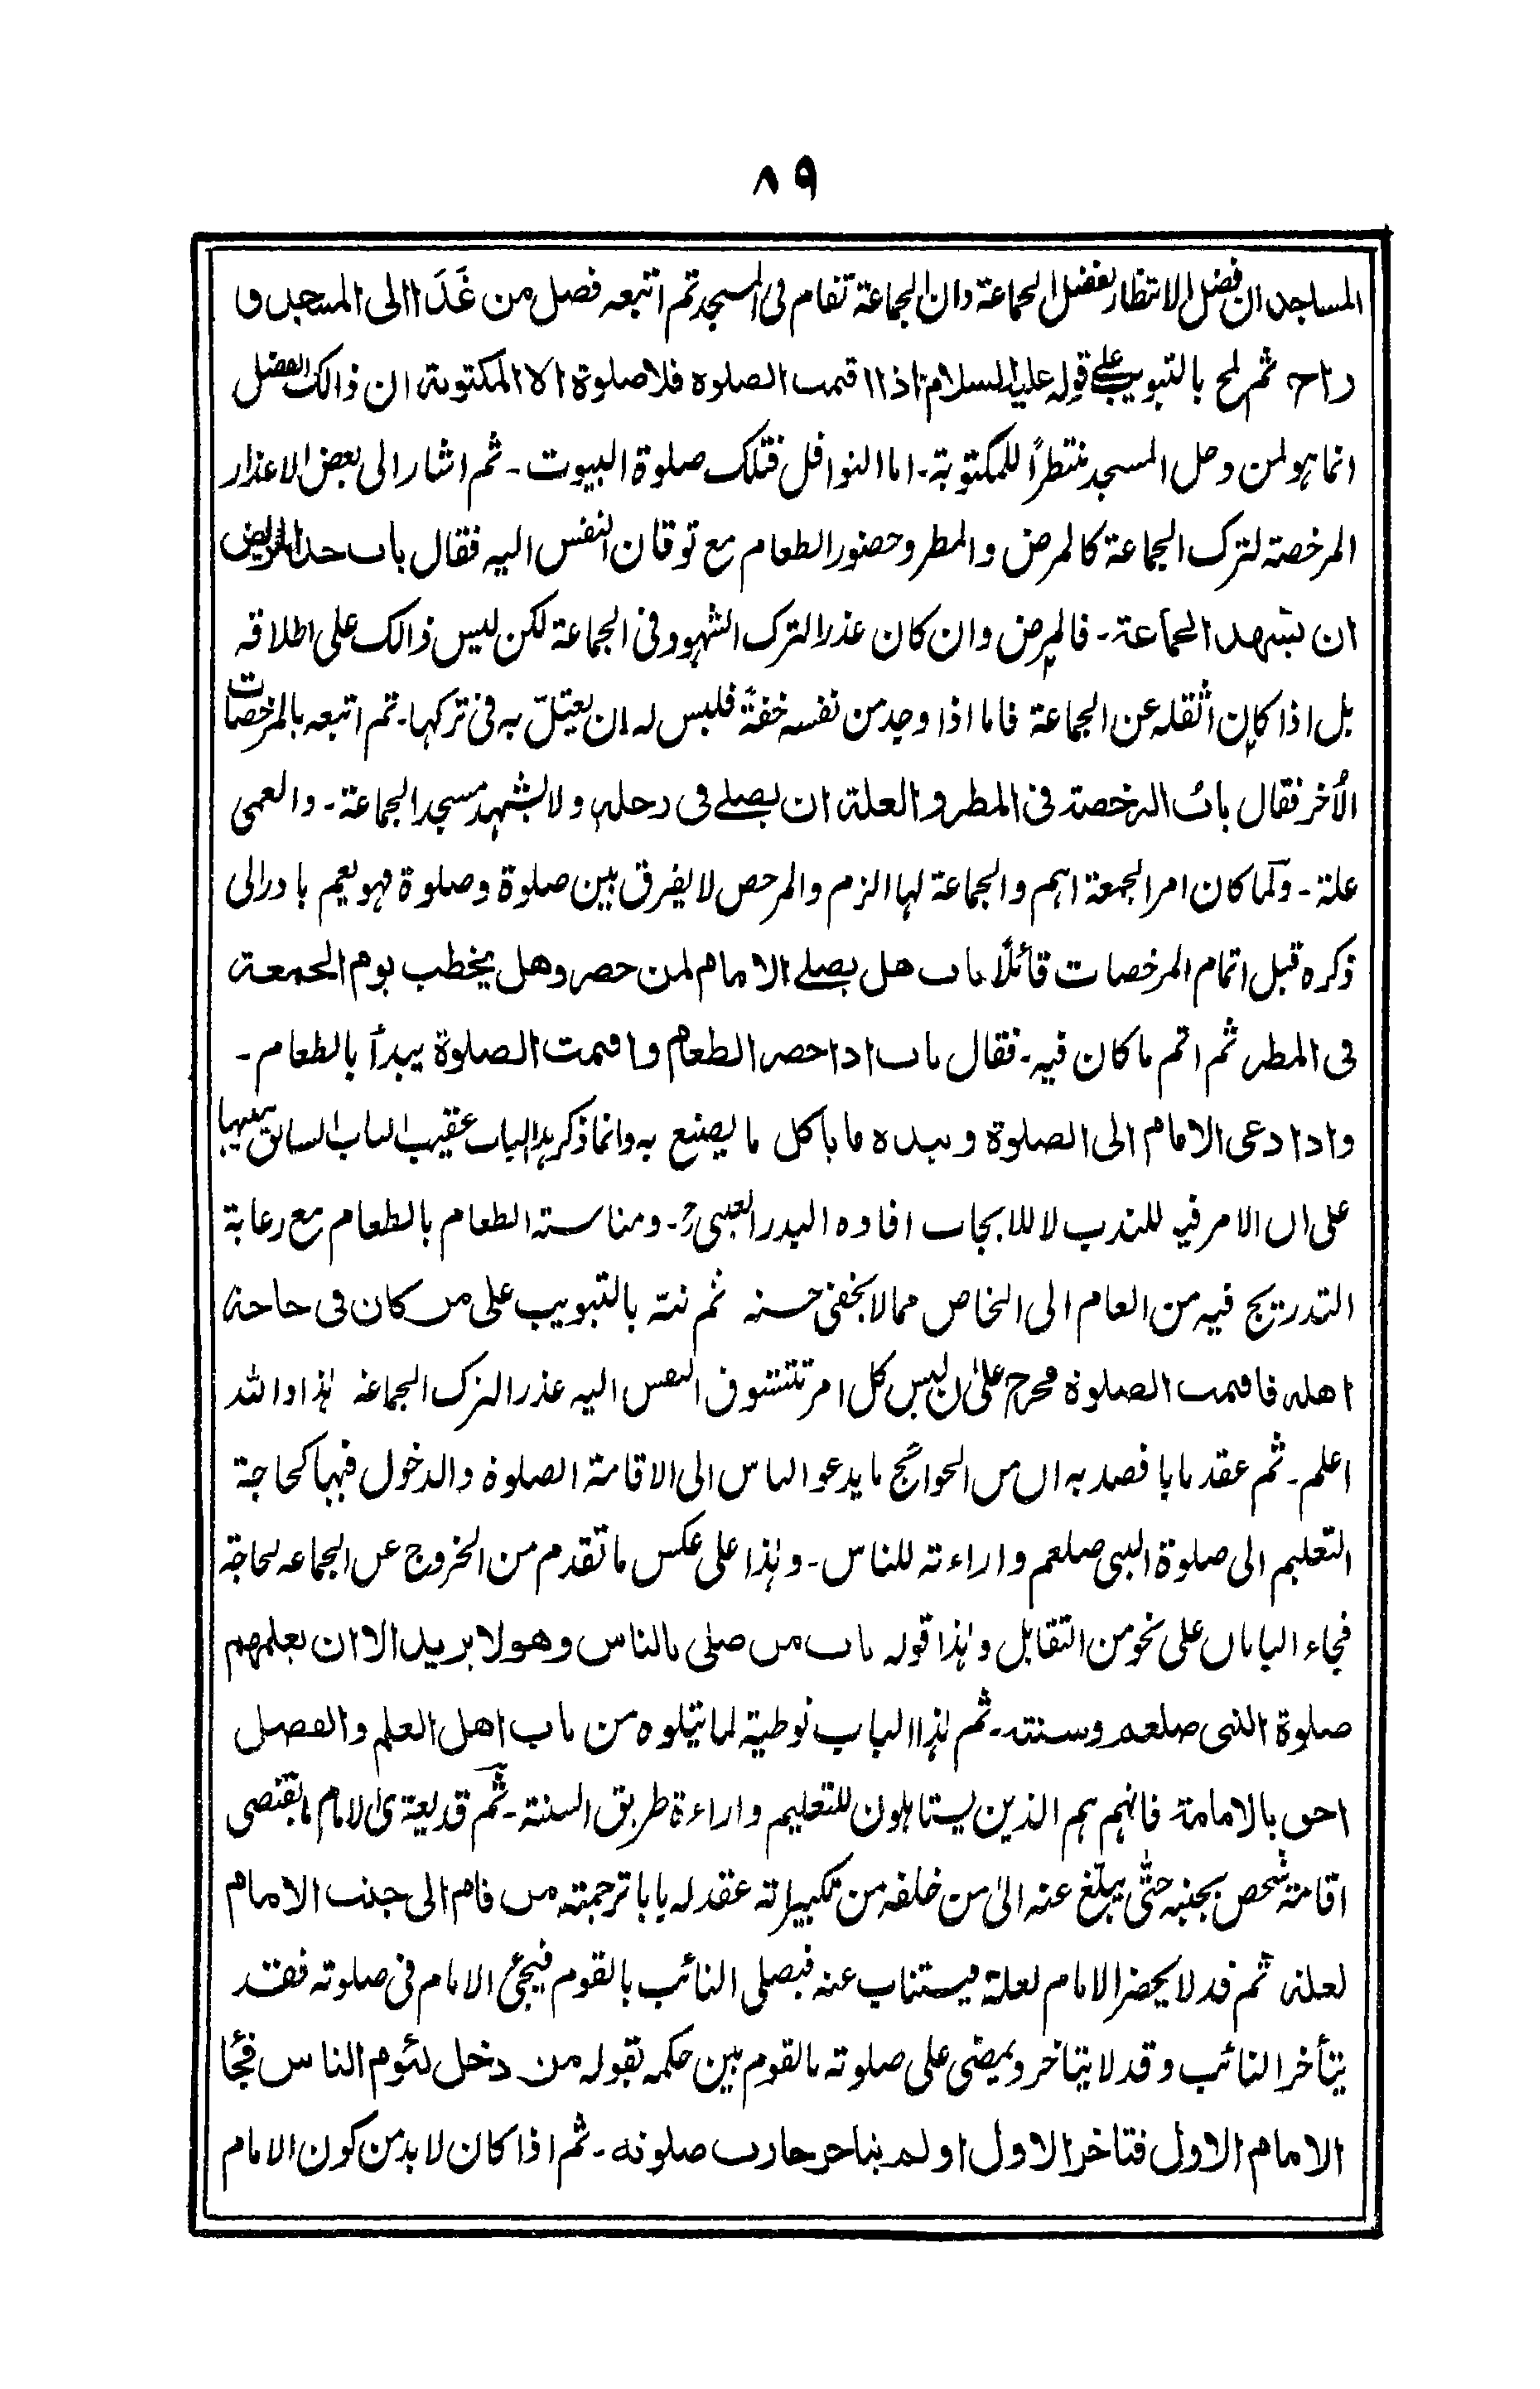 ٨٩
المساجد ان فضل الانتظار لفضل الجماعة وان الجماعة تقام فى المسجد ثم اتبعه فصل من غَدَا الى المسجد و
راح ثم لمح بالتبويب على قوله عليه السلام اذا اقيمت الصلوة فلا صلوة الا المكتوبة ان ذالك الفضل
انما هو لمن دخل المسجد منتظراً للمكتوبة۔ اما النوافل فتلك صلوة البيوت۔ ثم اشار الى بعض الاعذار
المرخصة لترك الجماعة كالمرض والمطر وحضور الطعام مع توقان النفس اليه فقال باب حد المريض
ان يشهد الجماعة۔ فالمرض وان كان عذرا لترك الشهود فى الجماعة لكن ليس ذالك على اطلاقه
بل اذا كان اثقله عن الجماعة فاما اذا وجد من نفسه خفةً فليس له ان يعتلّ به فى تركها۔ ثم اتبعه بالمرخصات
الأخر فقال بابُ الرخصة فى المطر و العلة ان يصلے فى رحله و لا يشهد مسجد الجماعة۔ والعمى
علة۔ ولما كان امر الجمعة اهم والجماعة لها الزم والمرخص لا يفرق بين صلوة وصلوة فهو يعم بادر الى
ذكره قبل اتمام المرخصات قائلاً باب هل يصلے الامام لمن حضر وهل يخطب يوم الجمعة
فى المطر ثم اتم ما كان فيه۔ فقال باب اذا حضر الطعام و اقيمت الصلوة يبدأ بالطعام۔
واذا دعى الامام الى الصلوة و بيده ما ياكل ما يصنع به وانما ذكر هذا الباب عقيب الباب السابق تنبيها
على ان الامر فيه للندب لا للايجاب افاده البدر العينىؒ۔ ومناسبة الطعام بالطعام مع رعاية
التدريج فيه من العام الى الخاص مما لا يخفى حسنه ثم نبّه بالتبويب على من كان فى حاجة
اهله فاقيمت الصلوة فخرج علىٰ ان ليس كل امر تتشوف النفس اليه عذرا لترك الجماعة هذا والله
اعلم۔ ثم عقد بابا قصد به ان من الحوائج ما يدعو الناس الى الاقامة الصلوة والدخول فيها كحاجة
التعليم الى صلوة النبى صلعم و اراءته للناس۔ وهذا على عكس ما تقدم من الخروج عن الجماعة لحاجة
فجاء البابان على نحو من التقابل وهذا قوله باب من صلى بالناس وهو لا يريد الا ان يعلمهم
صلوة النبى صلعم وسنته۔ ثم هذا الباب توطية لما يتلوه من باب اهل العلم والفضل
احق بالامامة فانهم هم الذين يستاهلون للتعليم و اراءة طريق السنة۔ ثم قد يعترى الامام ما يقتضى
اقامة شخص بجنبه حتّى يبلّغ عنه الىٰ من خلفه من تكبيراته عقد له بابا ترجمته من قام الى جنب الامام
لعلة ثم قد لا يحضر الامام لعلة فيستناب عنه فيصلى النائب بالقوم فيجئ الامام فى صلوته فقد
يتأخر النائب وقد لا يتاخر و يمضى على صلوته بالقوم بين حكمه بقوله من دخل ليؤم الناس فجا
الامام الاول فتاخر الاول او لم يتاخر جازت صلوته۔ ثم اذا كان لا بد من كون الامام